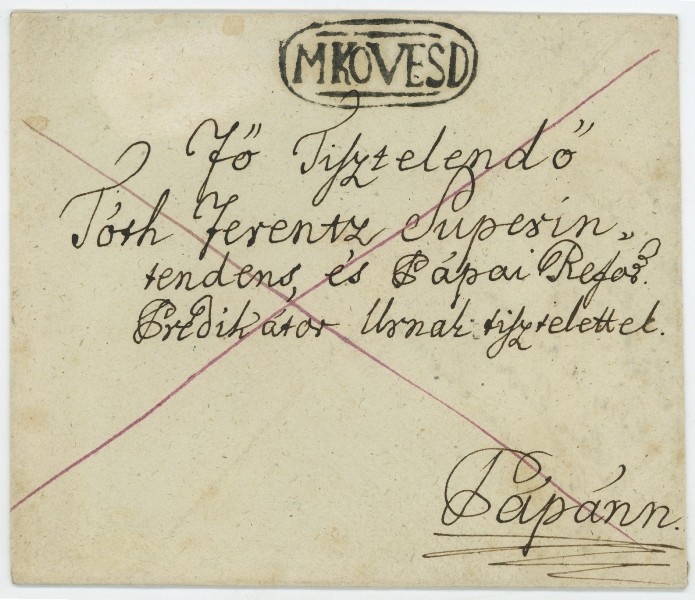 MKÖVESD
Fő Tisztelendő
Tóth Ferentz Superin„
tendens, és Pápai Refor.
Prédikátor Urnak tisztelettel.
Pápánn.